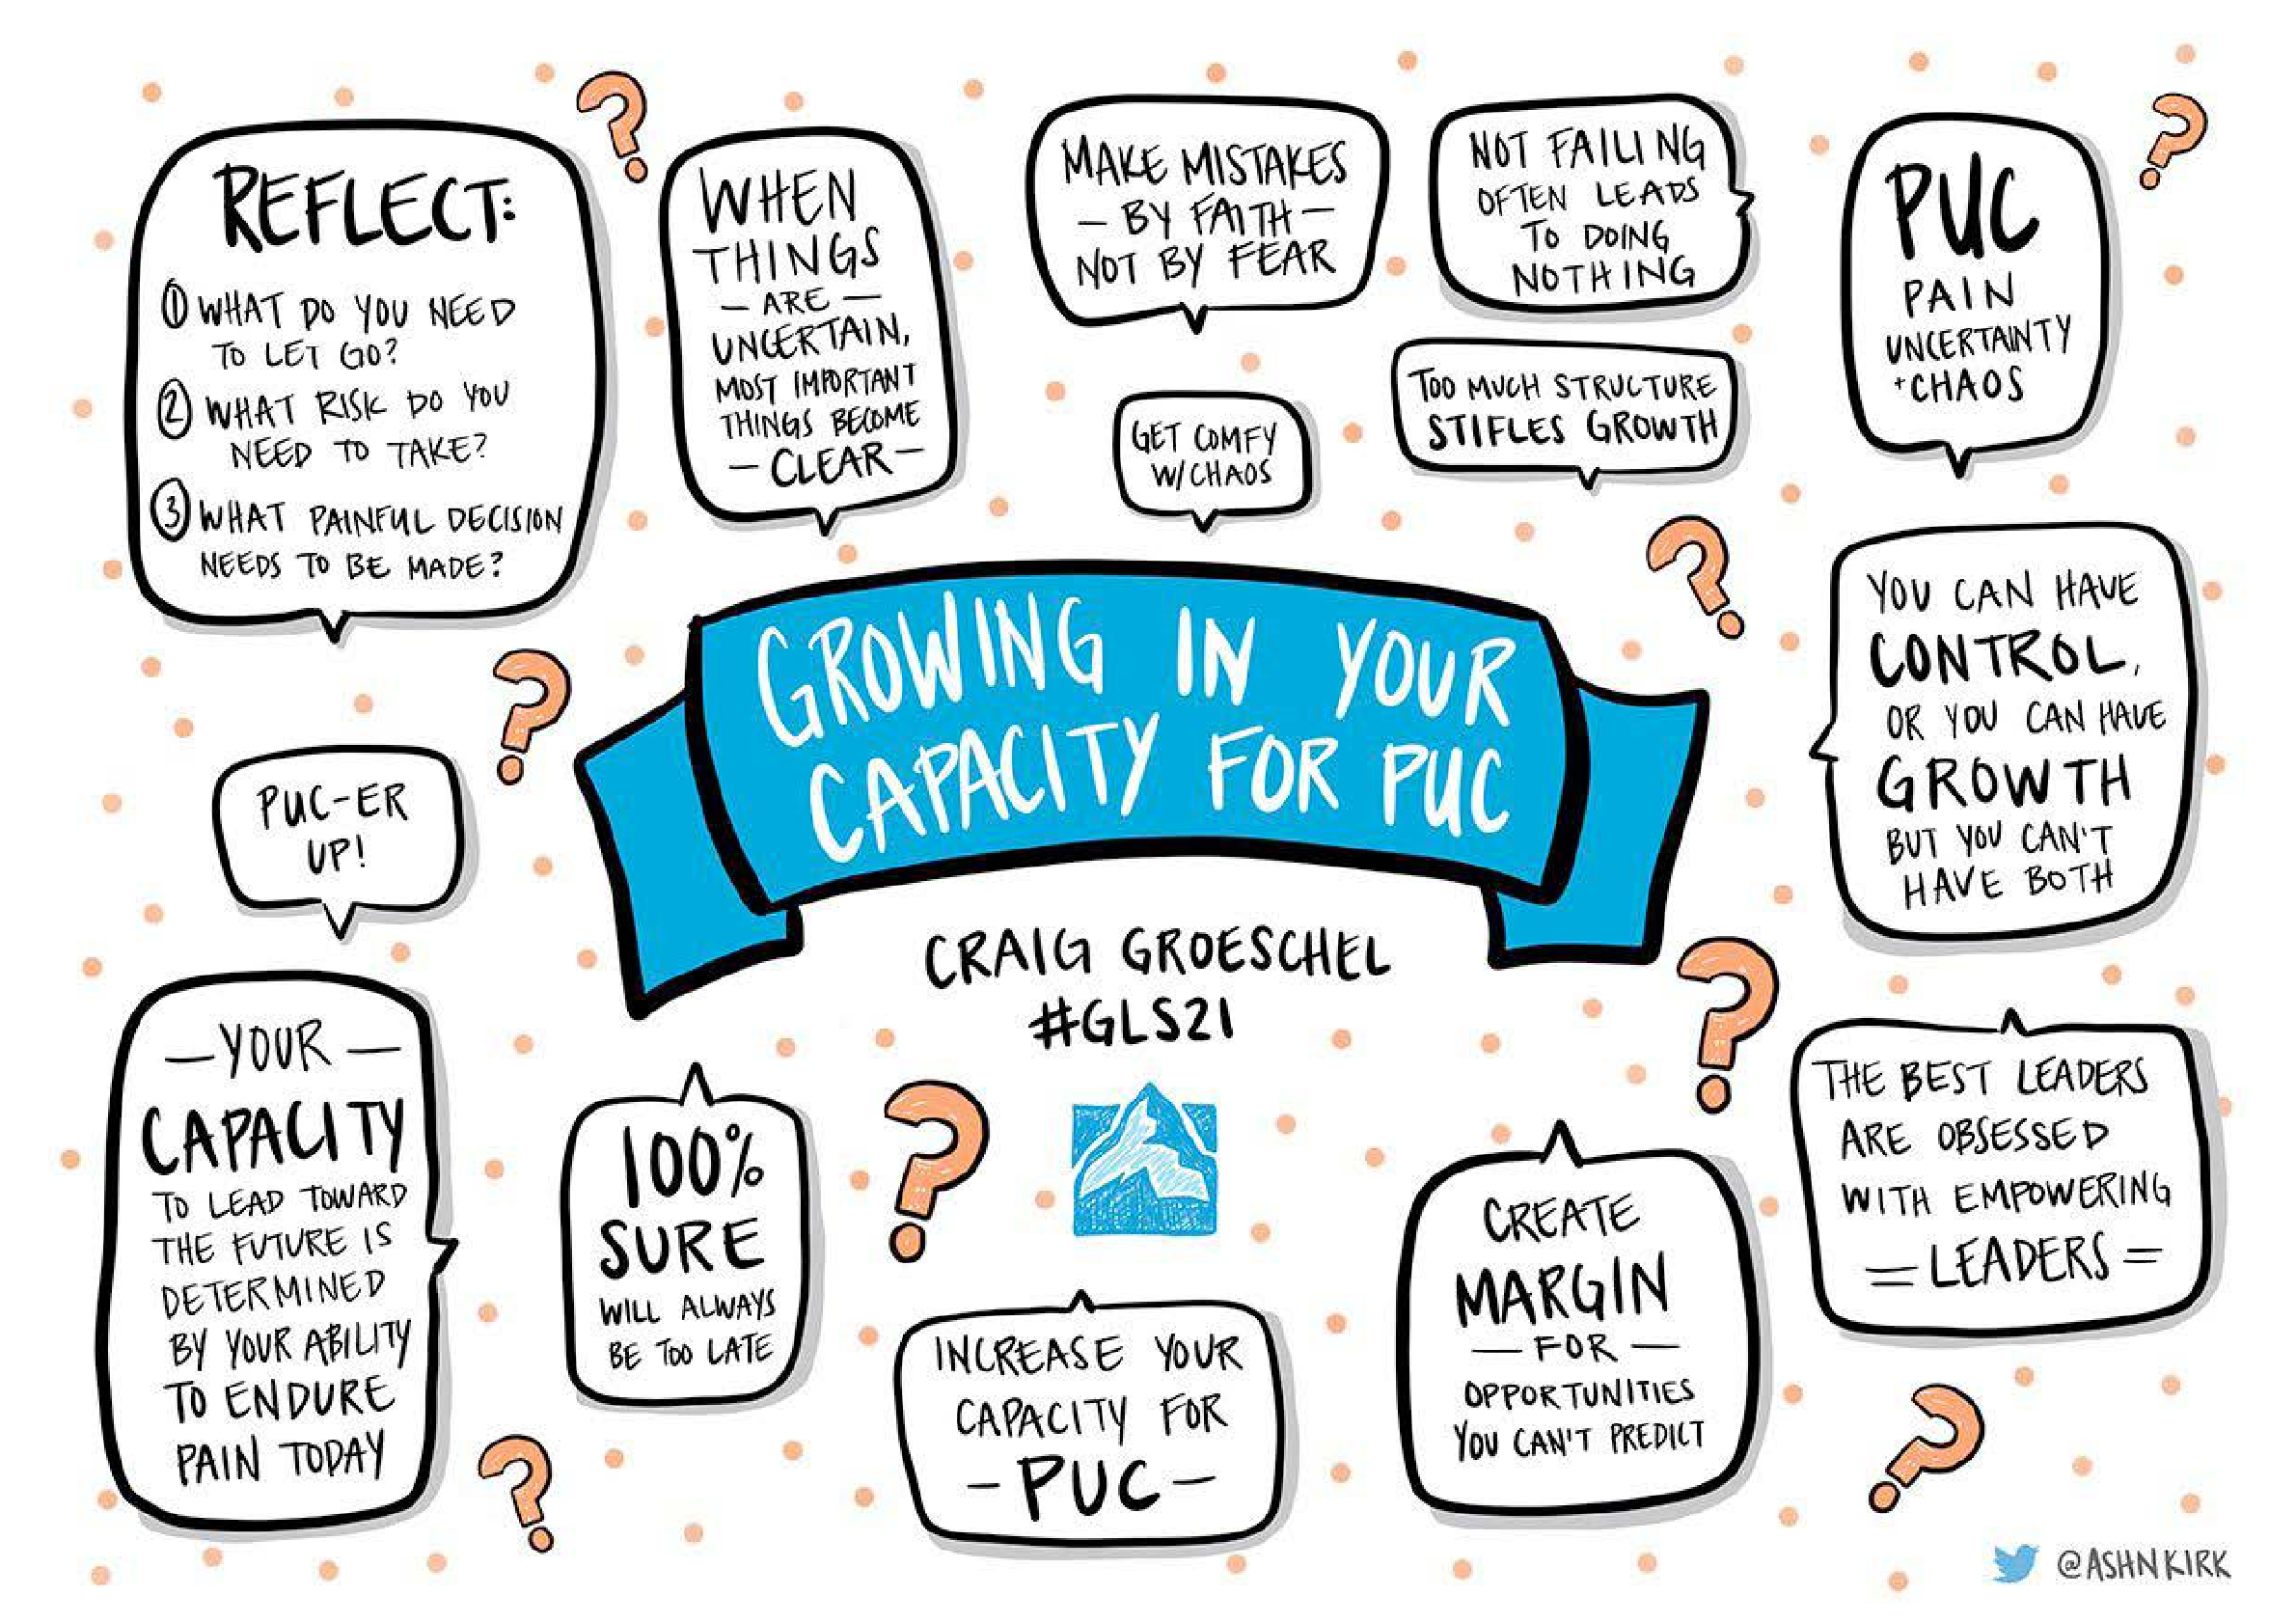 REFLECT:
① WHAT DO YOU NEED
TO LET GO?
② WHAT RISK DO YOU
NEED TO TAKE?
③ WHAT PAINFUL DECISION
NEEDS TO BE MADE?
WHEN
THINGS
— ARE —
UNCERTAIN,
MOST IMPORTANT
THINGS BECOME
— CLEAR —
MAKE MISTAKES
— BY FAITH —
NOT BY FEAR
NOT FAILING
OFTEN LEADS
TO DOING
NOTHING
PUC
PAIN
UNCERTAINTY
+CHAOS
GET COMFY
W/CHAOS
TOO MUCH STRUCTURE
STIFLES GROWTH
GROWING IN YOUR
CAPACITY FOR PUC
CRAIG GROESCHEL
#GLS21
YOU CAN HAVE
CONTROL,
OR YOU CAN HAVE
GROWTH
BUT YOU CAN'T
HAVE BOTH
PUC-ER
UP!
— YOUR —
CAPACITY
TO LEAD TOWARD
THE FUTURE IS
DETERMINED
BY YOUR ABILITY
TO ENDURE
PAIN TODAY
100%
SURE
WILL ALWAYS
BE TOO LATE
INCREASE YOUR
CAPACITY FOR
— PUC —
CREATE
MARGIN
— FOR —
OPPORTUNITIES
YOU CAN'T PREDICT
THE BEST LEADERS
ARE OBSESSED
WITH EMPOWERING
= LEADERS =
@ASHNKIRK